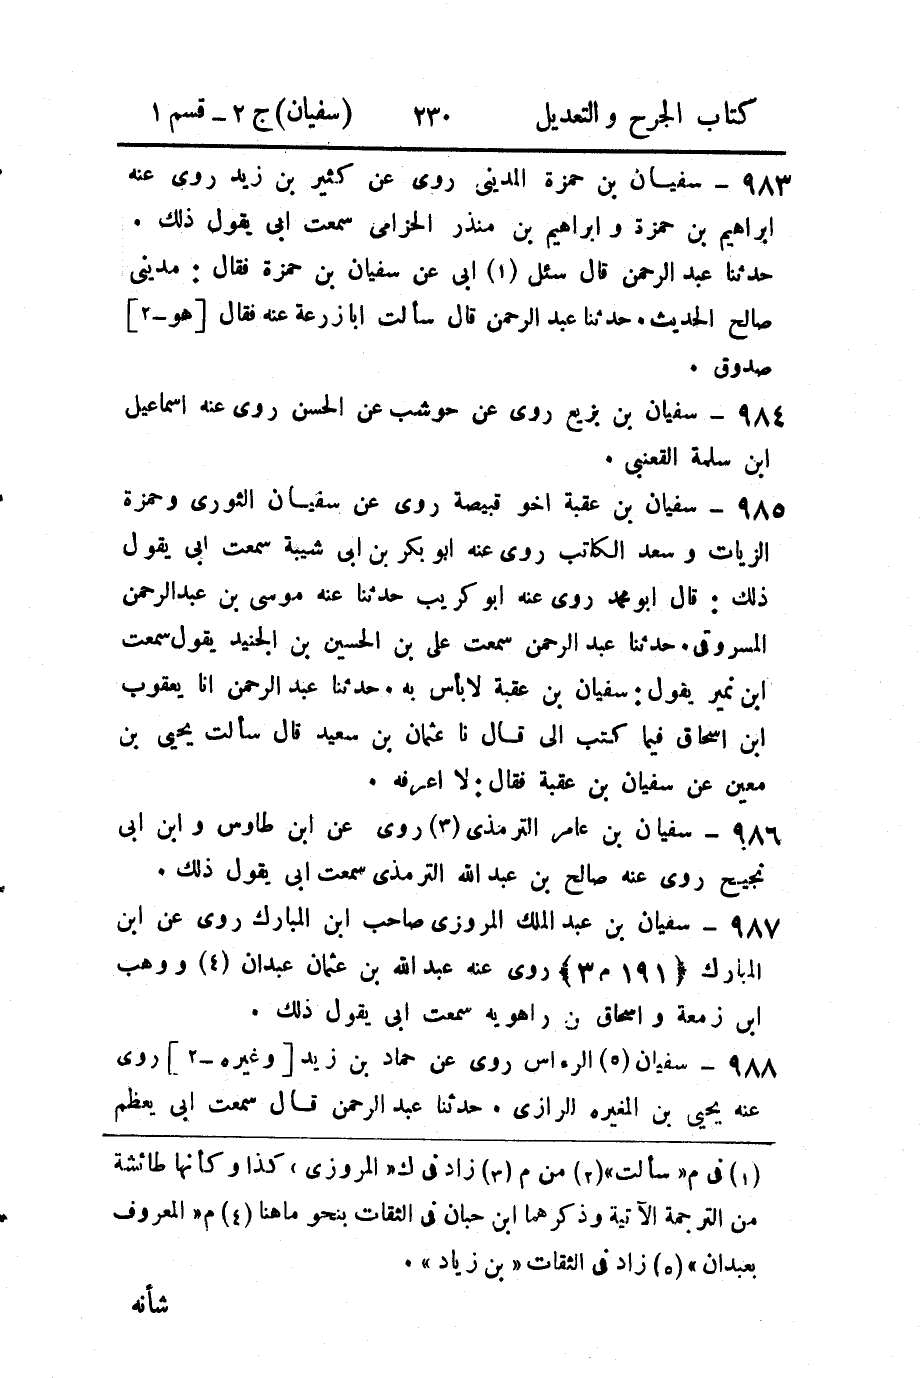 كتاب الجرح والتعديل ٢٣٠ (سفيان) ج ٢ ـ قسم ١
٩٨٣ ـ سفيان بن حمزة المديني روى عن كثير بن زيد روى عنه
ابراهيم بن حمزة و ابراهيم بن منذر الحزامى سمعت ابى يقول ذلك .
حدثنا عبد الرحمن قال سئل (١) ابى عن سفيان بن حمزة فقال : مدينى
صالح الحديث . حدثنا عبد الرحمن قال سألت ابا زرعة عنه فقال [هو ـ ٢]
صدوق .
٩٨٤ ـ سفيان بن بزيع روى عن حوشب عن الحسن روى عنه اسماعيل
ابن سلمة القعنبى .
٩٨٥ ـ سفيان بن عقبة اخو قبيصة روى عن سفيان الثورى وحمزة
الزيات و سعد الكاتب روى عنه ابو بكر بن ابى شيبة سمعت ابى يقول
ذلك : قال ابو محمد روى عنه ابو كريب حدثنا عنه موسى بن عبدالرحمن
المسروقى . حدثنا عبد الرحمن سمعت على بن الحسين بن الجنيد يقول سمعت
ابن نمير يقول : سفيان بن عقبة لابأس به . حدثنا عبد الرحمن انا يعقوب
ابن اسحاق فيما كتب الى قال نا عثمان بن سعيد قال سألت يحيى بن
معين عن سفيان بن عقبة فقال : لا اعرفه .
٩٨٦ ـ سفيان بن عامر الترمذى (٣) روى عن ابن طاوس و ابن ابى
نجيح روى عنه صالح بن عبد الله الترمذى سمعت ابى يقول ذلك .
٩٨٧ ـ سفيان بن عبد الملك المروزى صاحب ابن المبارك روى عن ابن
المبارك ﴿١٩١ م ٣﴾ روى عنه عبد الله بن عثمان عبدان (٤) و وهب
ابن زمعة و اسحاق بن راهويه سمعت ابى يقول ذلك .
٩٨٨ ـ سفيان (٥) الرءاس روى عن حماد بن زيد [وغيره ـ ٢] روى
عنه يحيى بن المغيرة الرازى . حدثنا عبد الرحمن قال سمعت ابى يعظم
(١) فى م «سألت» (٢) من م (٣) زاد فى ك «المروزى ، كذا وكأنها طائشة
من الترجمة الآتية وذكرهما ابن حبان فى الثقات بنحو ماهنا (٤) م «المعروف
بعبدان» (٥) زاد فى الثقات «بن زياد» .
شأنه